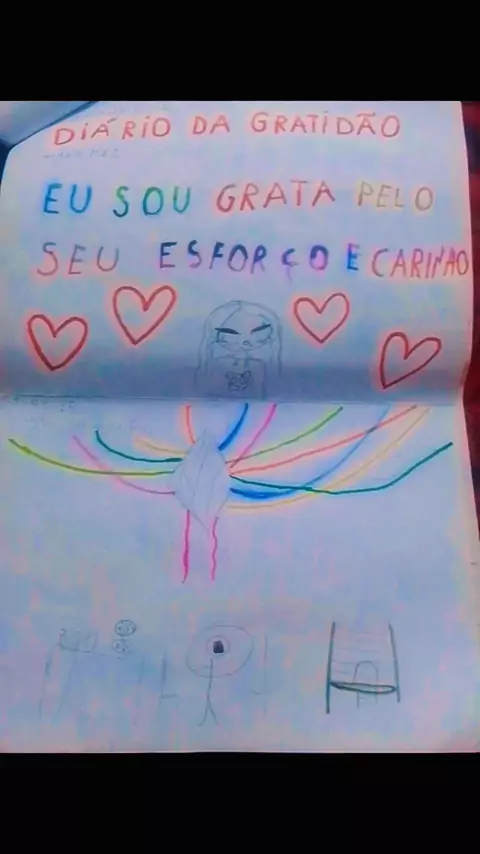 DIÁRIO DA GRATIDÃO
EU SOU GRATA PELO
SEU ESFORÇO E CARINHO